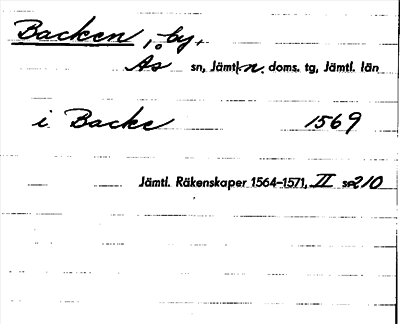 Backen, by,
Ås sn, Jämtl. n. doms. tg, Jämtl. län
i Backe 1569
Jämtl. Räkenskaper 1564-1571, II s. 210